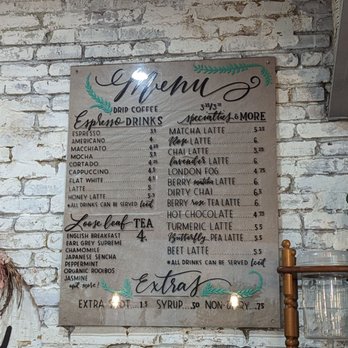 Menu
DRIP COFFEE
Espresso DRINKS
ESPRESSO
AMERICANO
MACCHIATO
MOCHA
CORTADO
CAPPUCCINO
FLAT WHITE
LATTE
HONEY LATTE
*ALL DRINKS CAN BE SERVED iced
Loose leaf TEA
4
ENGLISH BREAKFAST
EARL GREY SUPREME
CHAMOMILE
JAPANESE SENCHA
PEPPERMINT
ORGANIC ROOIBOS
JASMINE
and more!
specialties & MORE
MATCHA LATTE 5.25
Rose LATTE 6
CHAI LATTE
lavender LATTE 6
LONDON FOG
BERRY matcha LATTE 6
DIRTY CHAI 6
BERRY rose TEA LATTE 6
HOT CHOCOLATE 4.75
TURMERIC LATTE
Butterfly PEA LATTE
BEET LATTE
*ALL DRINKS CAN BE SERVED iced
Extras
EXTRA SHOT SYRUP NON-DAIRY .75